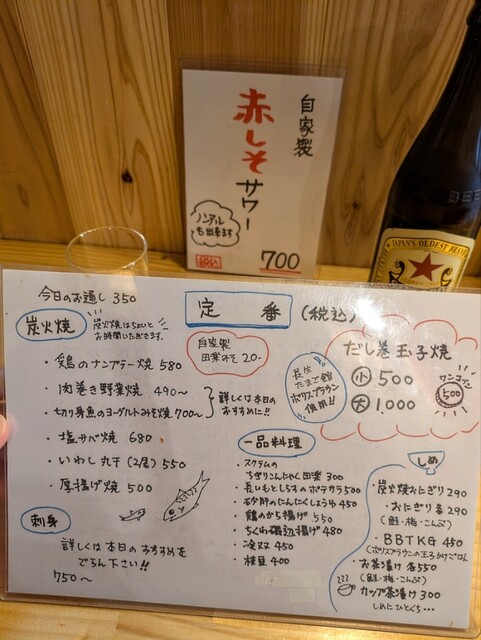 自家製
赤しそサワー
ノンアルも出来ます
税込
700
JAPAN'S OLDEST BRAND
今日のお通し 350
定番 (税込)
炭火焼
炭火焼はちょいとお時間いただきます。
自家製
田楽みそ 20-
・鶏のナンプラー焼 580
・肉巻き野菜焼 490〜
・切り身魚のヨーグルトみそ焼 700〜
詳しくは本日のおすすめに!!
・塩サバ焼 680
・いわし丸干(2尾) 550
・厚揚げ焼 500
刺身
詳しくは本日のおすすめを
ご覧下さい!!
750〜
だし巻玉子焼
小 500
大 1,000
ワンコイン
500
長生
たまご館
ボリスブラウン
使用!!
一品料理
・スクラムの
ちぎりこんにゃく田楽 300
・長いもとしらすのポテサラ 500
・砂肝のにんにくしょうゆ 450
・鶏のから揚げ 550
・ちくわ磯辺揚げ 480
・冷奴 450
・枝豆 400
しめ
・炭火焼おにぎり 290
・おにぎり各 290
(鮭・梅・こんぶ)
・BBTKG 450
(ボリスブラウンの玉子かけごはん)
・お茶漬け 各550
(鮭・梅・こんぶ)
カップ茶漬け 300
しめにひとくち…